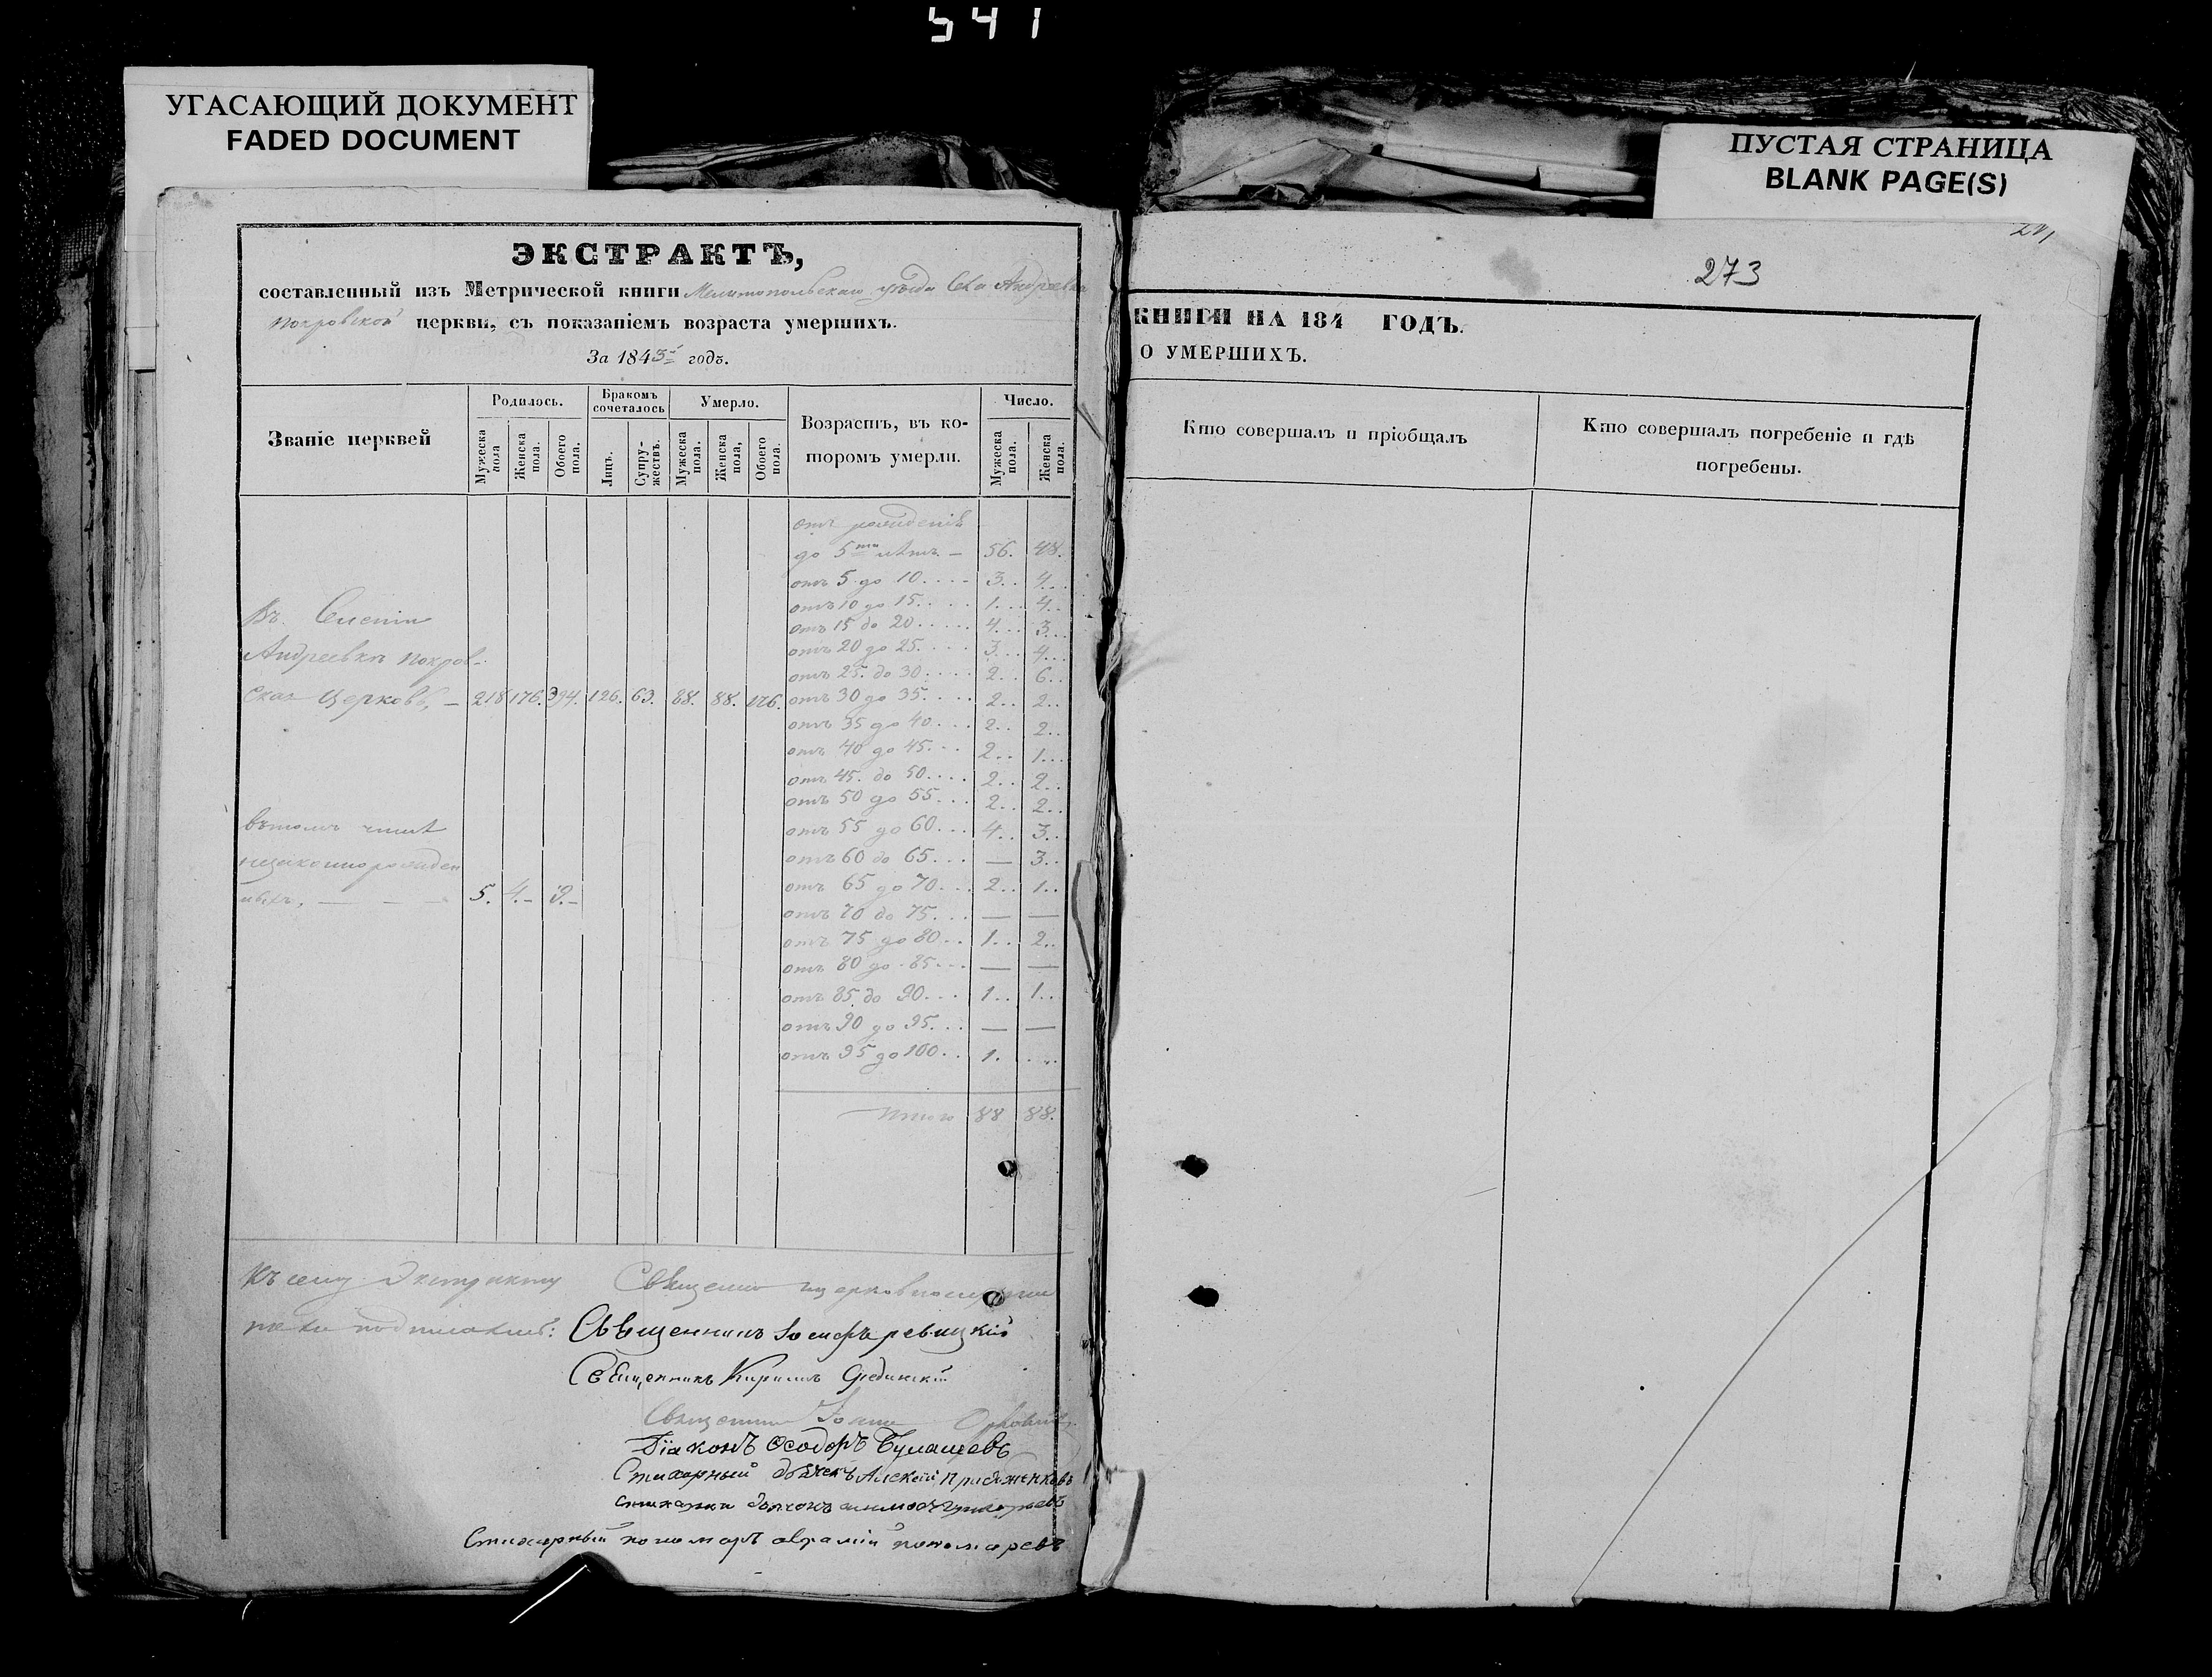 541
УГАСАЮЩИЙ ДОКУМЕНТ
FADED DOCUMENT
ПУСТАЯ СТРАНИЦА
BLANK PAGE(S)
ЭКСТРАКТЪ,
составленный изъ Метрической книги Мелитопольскаго уѣзда Села Андреевки
Покровской церкви, съ показаніемъ возраста умершихъ.
За 1843й годъ.
Званіе церквей
Родилось.
Бракомъ сочеталось
Умерло.
Возрастъ, въ которомъ умерли.
Число.
Мужеска пола
Женска пола.
Обоего пола.
Лицъ.
Супружествъ.
Мужеска пола.
Женска пола,
Обоего пола.
Мужеска пола.
Женска пола.
отъ рожденія
до 5ти лѣтъ — 56. 48.
отъ 5 до 10.... 3.. 4...
отъ 10 до 15.... 1... 4..
отъ 15 до 20..... 4... 3...
отъ 20 до 25.... 3... 4...
отъ 25. до 30.... 2.. 6..
Въ Селеніи
Андреевкѣ Покров-
ская Церковь, — 218 176. 394. 126. 63. 88. 88. 176. отъ 30 до 35.... 2.. 2..
отъ 35 до 40.... 2.. 2..
отъ 40 до 45... 2.. 1...
отъ 45. до 50.... 2.. 2..
отъ 50 до 55... 2.. 2..
отъ 55 до 60... 4.. 3..
отъ 60 до 65... — 3..
отъ 65 до 70... 2.. 1..
отъ 70 до 75... — —
отъ 75 до 80.. 1.. 2..
отъ 80 до 85... — —
отъ 85 до 90... 1.. 1..
отъ 90 до 95... — —
отъ 95 до 100.. 1. ...
Итого 88 88.
въ томъ числѣ
незаконнорожден
ныхъ, — — — 5. 4.- 9.-
Къ сему Экстракту Священно церковнослужи
тели подписались: Священникъ Іосифъ Ревицкій
Священникъ Кириллъ
Священникъ Іоаннъ
Діаконъ Ѳеодоръ
Стихарный дьячекъ Алексій
Стихарный дьячокъ
Стихарный пономарь Аврамій Пономаревъ
273
КНИГИ НА 184 ГОДЪ.
О УМЕРШИХЪ.
Кто совершалъ и пріобщалъ
Кто совершалъ погребеніе и гдѣ
погребены.